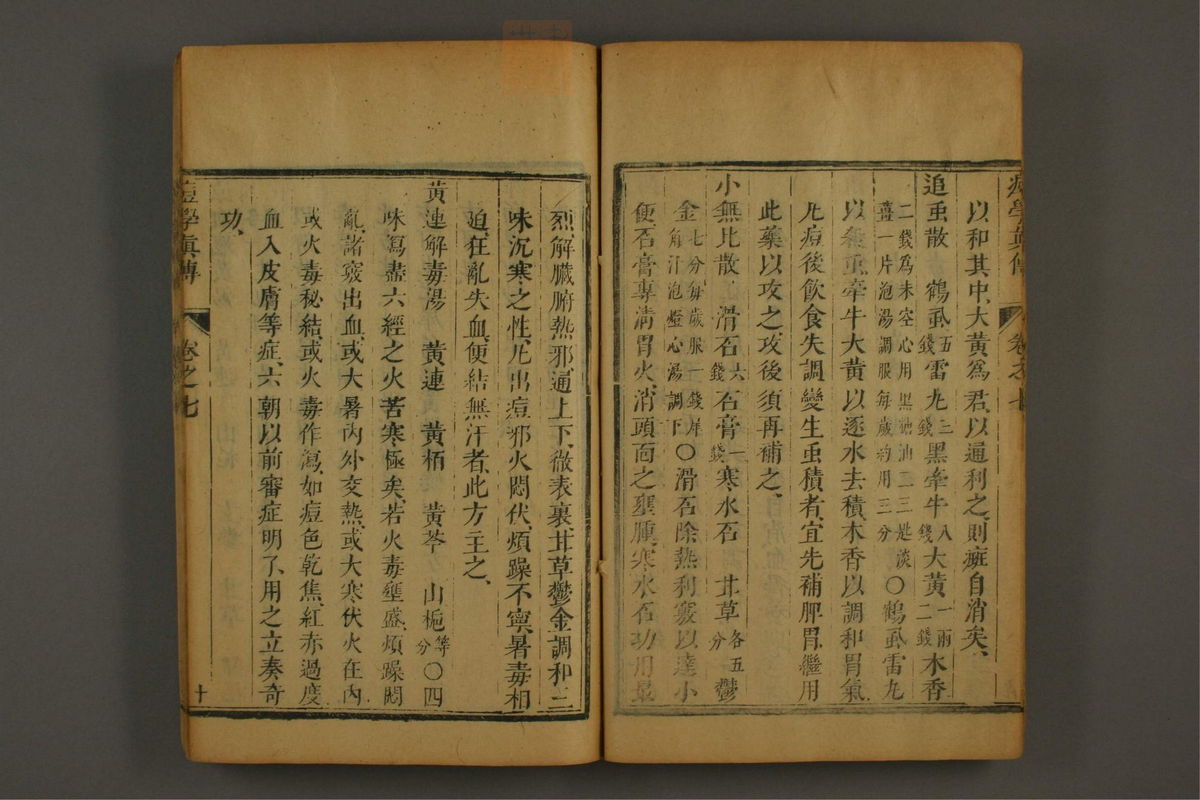 痘學眞傳 卷之七
以和其中、大黃爲君、以通利之、則癰自消矣、
追䖝散 鶴虱五錢 雷丸三錢 黑牽牛八錢 大黃一兩二錢 木香
二錢爲末空心用黑糖油二三匙淡
薑一片泡湯調服每歲約用三分
〇鶴虱雷丸
以殺䖝、牽牛大黃以逐水去積、木香以調和胃氣、
凢痘後飲食失調、變生䖝積者、宜先補脾胃、繼用
此藥以攻之、攻後須再補之、
小無比散 滑石六錢 石膏一錢 寒水石 甘草各五分 鬱
金七分每歲服一錢犀
角解汁泡燈心湯調下
〇滑石除熱利竅、以達小
便、石膏專淸胃火、消頭面之壅腫、寒水石功用最
烈、解臟腑熱邪、通上下、徹表裏、甘草鬱金調和三
味沉寒之性、凢出痘邪火悶伏、煩躁不寧、暑毒相
迫、狂亂失血、便結無汗者、此方主之、
黃連解毒湯 黃連 黃栢 黃芩 山梔等分 〇四
味瀉盡六經之火、苦寒極矣、若火毒壅盛、煩躁悶
亂、諸竅出血、或大暑內外交熱、或大寒伏火在內、
或火毒秘結、或火毒作瀉、如痘色乾焦、紅赤過度、
血入皮膚等症、六朝以前審症明了、用之立奏奇
功、
痘學眞傳 卷之七 十